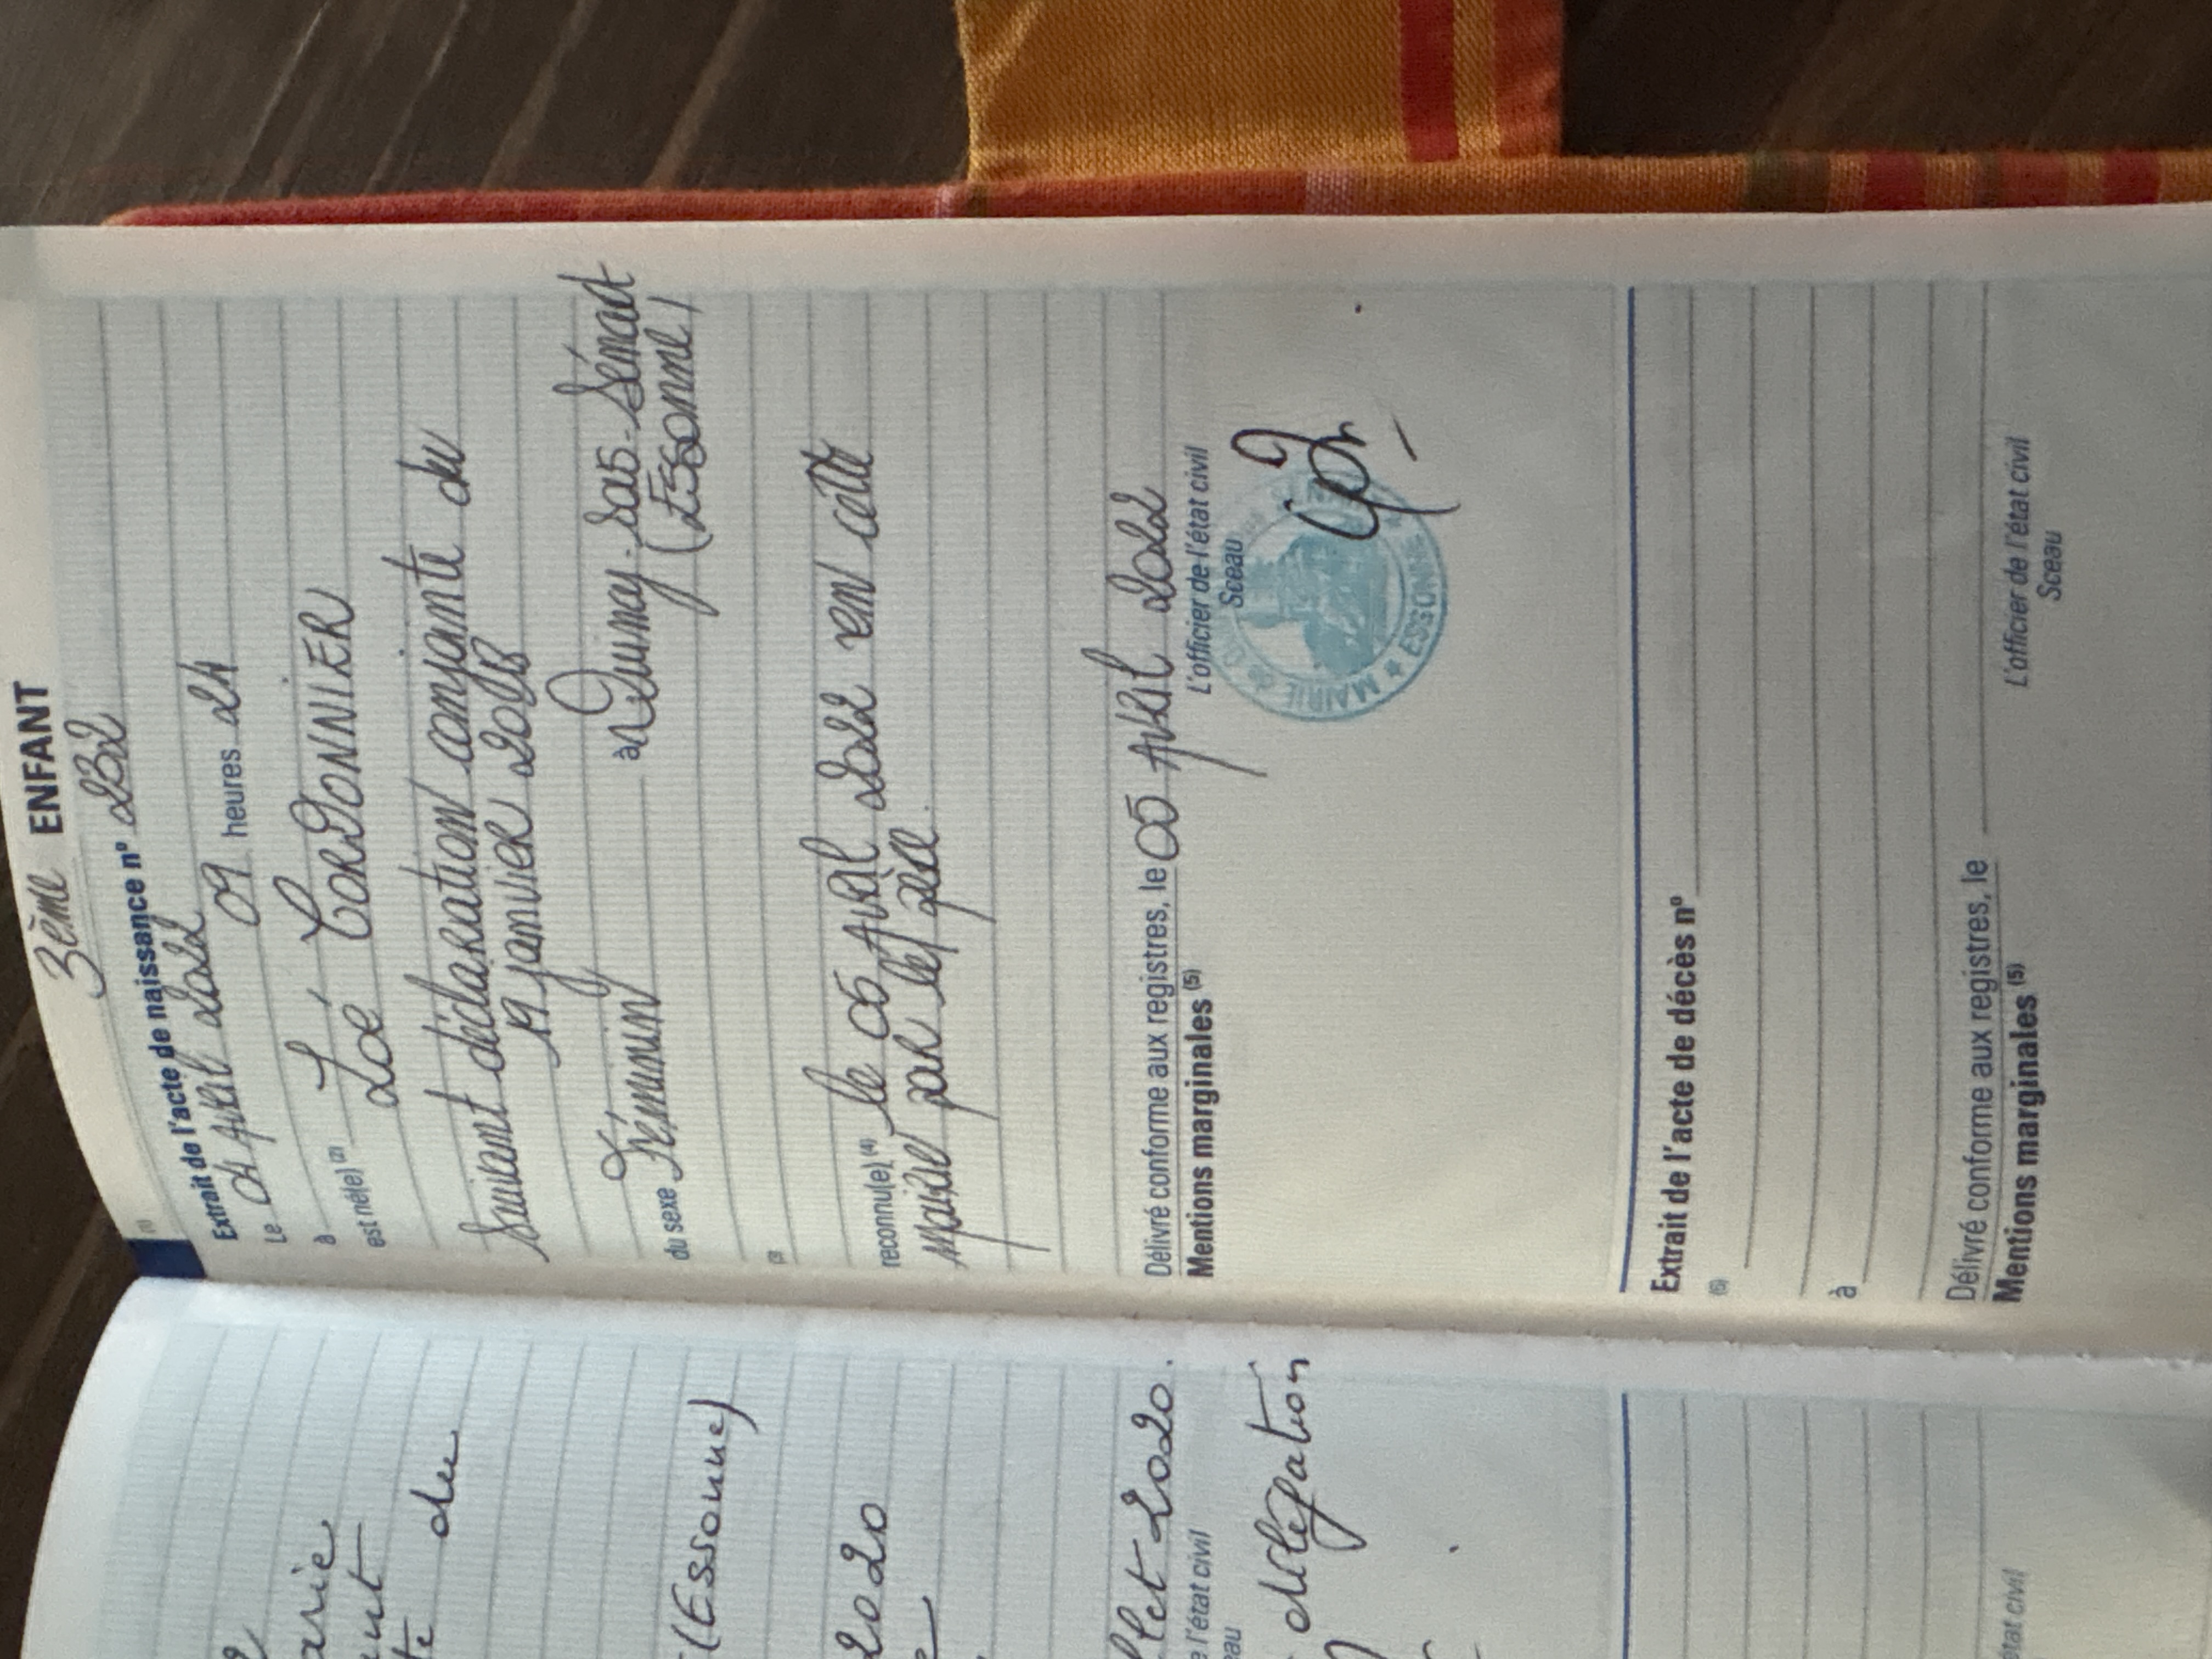 3ème ENFANT
(1)
Extrait de l'acte de naissance n° 232
Le 04 Avril 2022 09 heures 24
à
est né(e) (2) Zoé CORDONNIER
suivant déclaration conjointe du
19 janvier 2018
du sexe Féminin à Quincy-sous-Sénart
(Essonne)
(3)
reconnu(e) (4) le 05 Avril 2022 en cette
mairie par le père.
Délivré conforme aux registres, le 05 Avril 2022
Mentions marginales (5) L'officier de l'état civil
Sceau
MAIRIE de
ESSONNE
Extrait de l'acte de décès n°
(6)
à
Délivré conforme aux registres, le
Mentions marginales (5) L'officier de l'état civil
Sceau
arie
du
(Essonne)
2020
llet 2020.
e l'état civil
eau
délégation
état civil